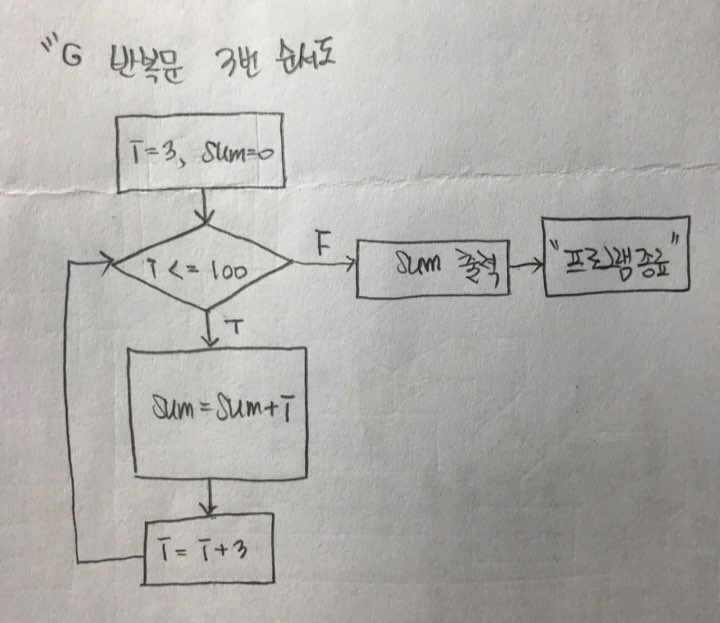 "G 반복문 3번 순서도
i=3, sum=0
i<=100
F
sum 출력
"프로그램 종료"
T
sum=sum+i
i=i+3